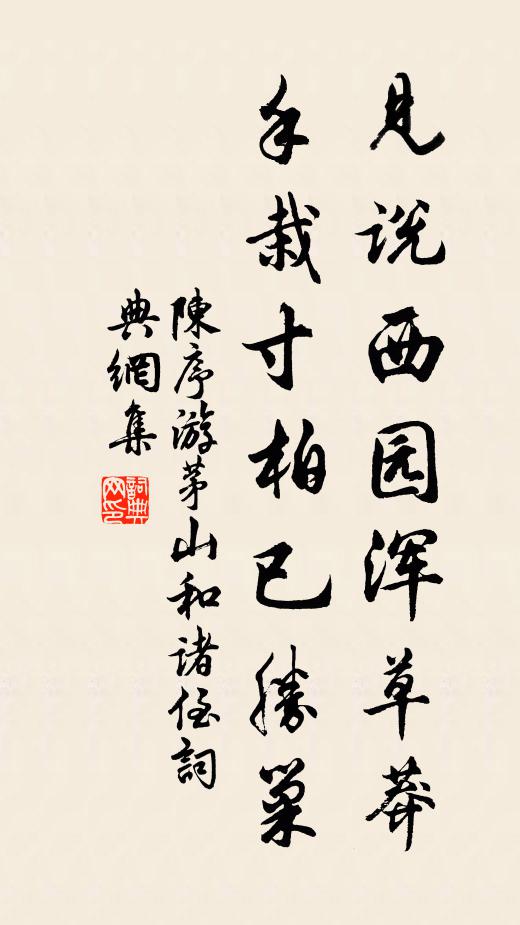 见说西园浑草莽
手栽寸柏已勝巢
陳序游茅山和诸侄詞
典網集
詞典网印